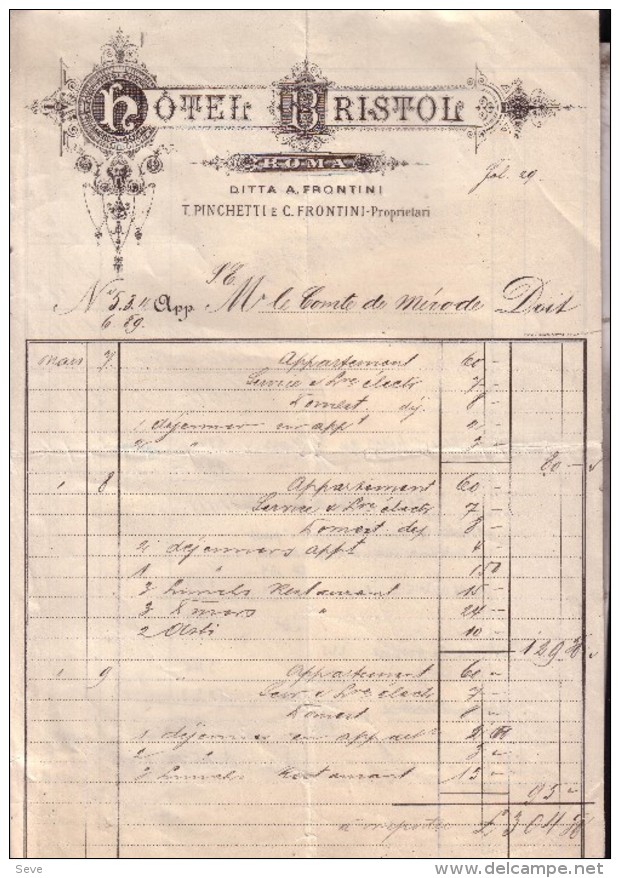 HÔTEL BRISTOL
ROMA
DITTA A. FRONTINI
T. PINCHETTI E C. FRONTINI-Proprietari
Fol. 29
S.E.
No 5.3.4 App. Mr le Comte de Mérode Doit
6. 89.
Mars 7 Appartement 60 –
Service & électr 7 –
Domest. déj. 8 –
1 déjeuner en appt
" 3 –
80 –
" 8 Appartement 60 –
Service & électr 7 –
Domest dej 8 –
2 déjeuners appt 4 –
1 " 1 50
3 Lunchs Restaurant 15 –
3 Diners " 24 –
2 Asti 10 –
129 50
" 9 " Appartement 60 –
Serv & électr 7 –
Domest 8 –
1 déjeuner en appart
2 " 3 –
3 Lunchs Restaurant 15 –
95 –
à reporter £ 304 50
Seve
delcampe.net